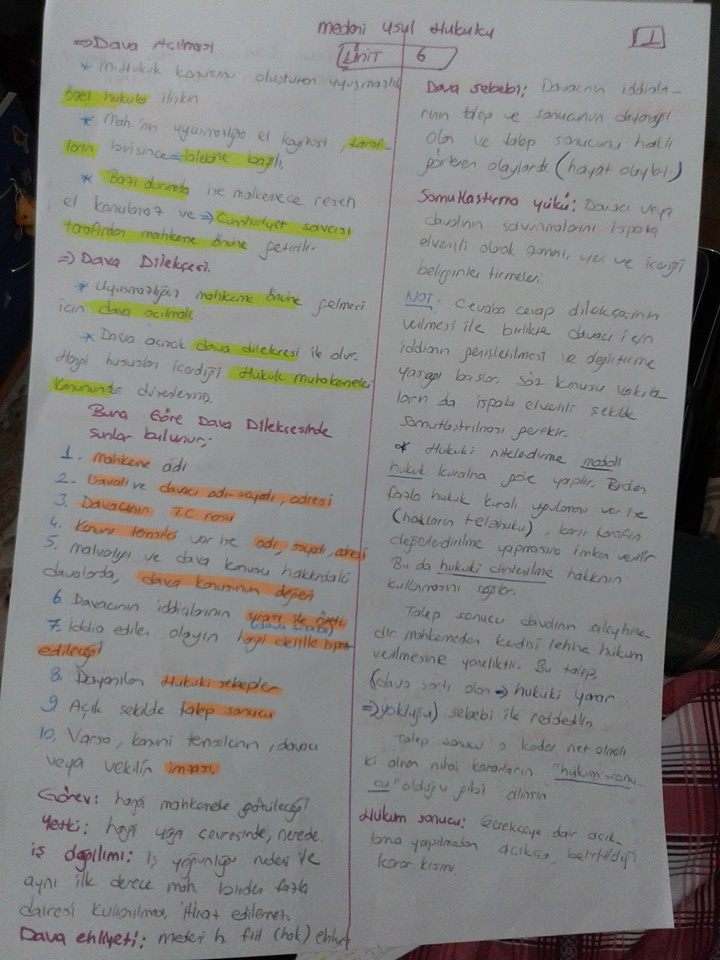 Medeni Usul Hukuku
1
ÜNİT 6
⇒ Dava Açılması
* M. Hukuk konusunu oluşturan uyuşmazlık
özel hukuka ilişkin
* Mah'nin uyuşmazlığa el koyması, taraf-
ların birisince talebine bağlı.
* Bazı durumda ise mahkemece resen
el konulmaz ve ⇒ Cumhuriyet savcısı
tarafından mahkeme önüne getirilir.
⇒ Dava Dilekçesi.
* Uyuşmazlığın mahkeme önüne gelmesi
için dava açılmalı
* Dava açmak dava dilekçesi ile olur.
Hangi hususları içerdiği Hukuk muhakemeleri
kanununda düzenlenmiş.
Buna Göre Dava Dilekçesinde
şunlar bulunur;
1. Mahkeme adı
2. Davalı ve davacı adı-soyadı, adresi
3. Davacının T.C nosu
4. Kanuni temsilci var ise adı, soyadı, adresi
5. malvarlığı ve dava konusu hakkındaki
davalarda, dava konusunun değeri
6. Davacının iddialarının sırası ile özeti
7. İddia edilen olayın hangi delille ispat
edileceği
8. Dayanılan Hukuki sebepler
9. Açık şekilde talep sonucu
10. Varsa, kanuni temsilcinin, davacı
veya vekilin imzası.
Görev: hangi mahkemede görüleceği
Yetki: hangi yargı çevresinde, nerede.
iş dağılımı: İş yoğunluğu nedeni ile
aynı ilk derece mah. birden fazla
dairesi kurulmuş, itiraz edilemez.
Dava ehliyeti: medeni h. fiil (hak) ehliyeti
Dava sebebi: Davacının iddiala-
rının talep ve sonucunun dayanağı
olan ve talep sonucunu haklı
gösteren olaylardır (hayat olayları)
Somutlaştırma yükü: Davacı veya
davalının savunmalarını ispata
elverişli olarak zamanı, yeri ve içeriği
belirginleştirmeleri.
NOT: Cevaba cevap dilekçesinin
verilmesi ile birlikte davacı için
iddianın genişletilmesi ve değiştirme
yasağı başlar. Söz konusu vakıa-
ların da ispata elverişli şekilde
somutlaştırılması gerekir.
* Hukuki niteledirme maddi
hukuk kuralına göre yapılır. Birden
fazla hukuk kuralı uygulanması var ise
(hakların telahuku), karşı tarafın
değerlendirilme yapmasına imkan verilir
Bu da hukuki dinlenilme hakkının
kullanmasını sağlar.
Talep sonucu davalının aleyhine-
dir mahkemeden kendisi lehine hüküm
verilmesine yöneliktir. Bu talep,
(dava şartı olan ⇒ hukuki yarar
⇒ yokluğu) sebebi ile reddedilir.
Talep sonucu o kadar net olmalı
ki alınan nihai kararların "hüküm sonu-
cu" olduğu gibi alınsın
Hüküm sonucu: Gerekçeye dair açık-
lama yapılmadan açıkça, belirtildiği
karar kısmı